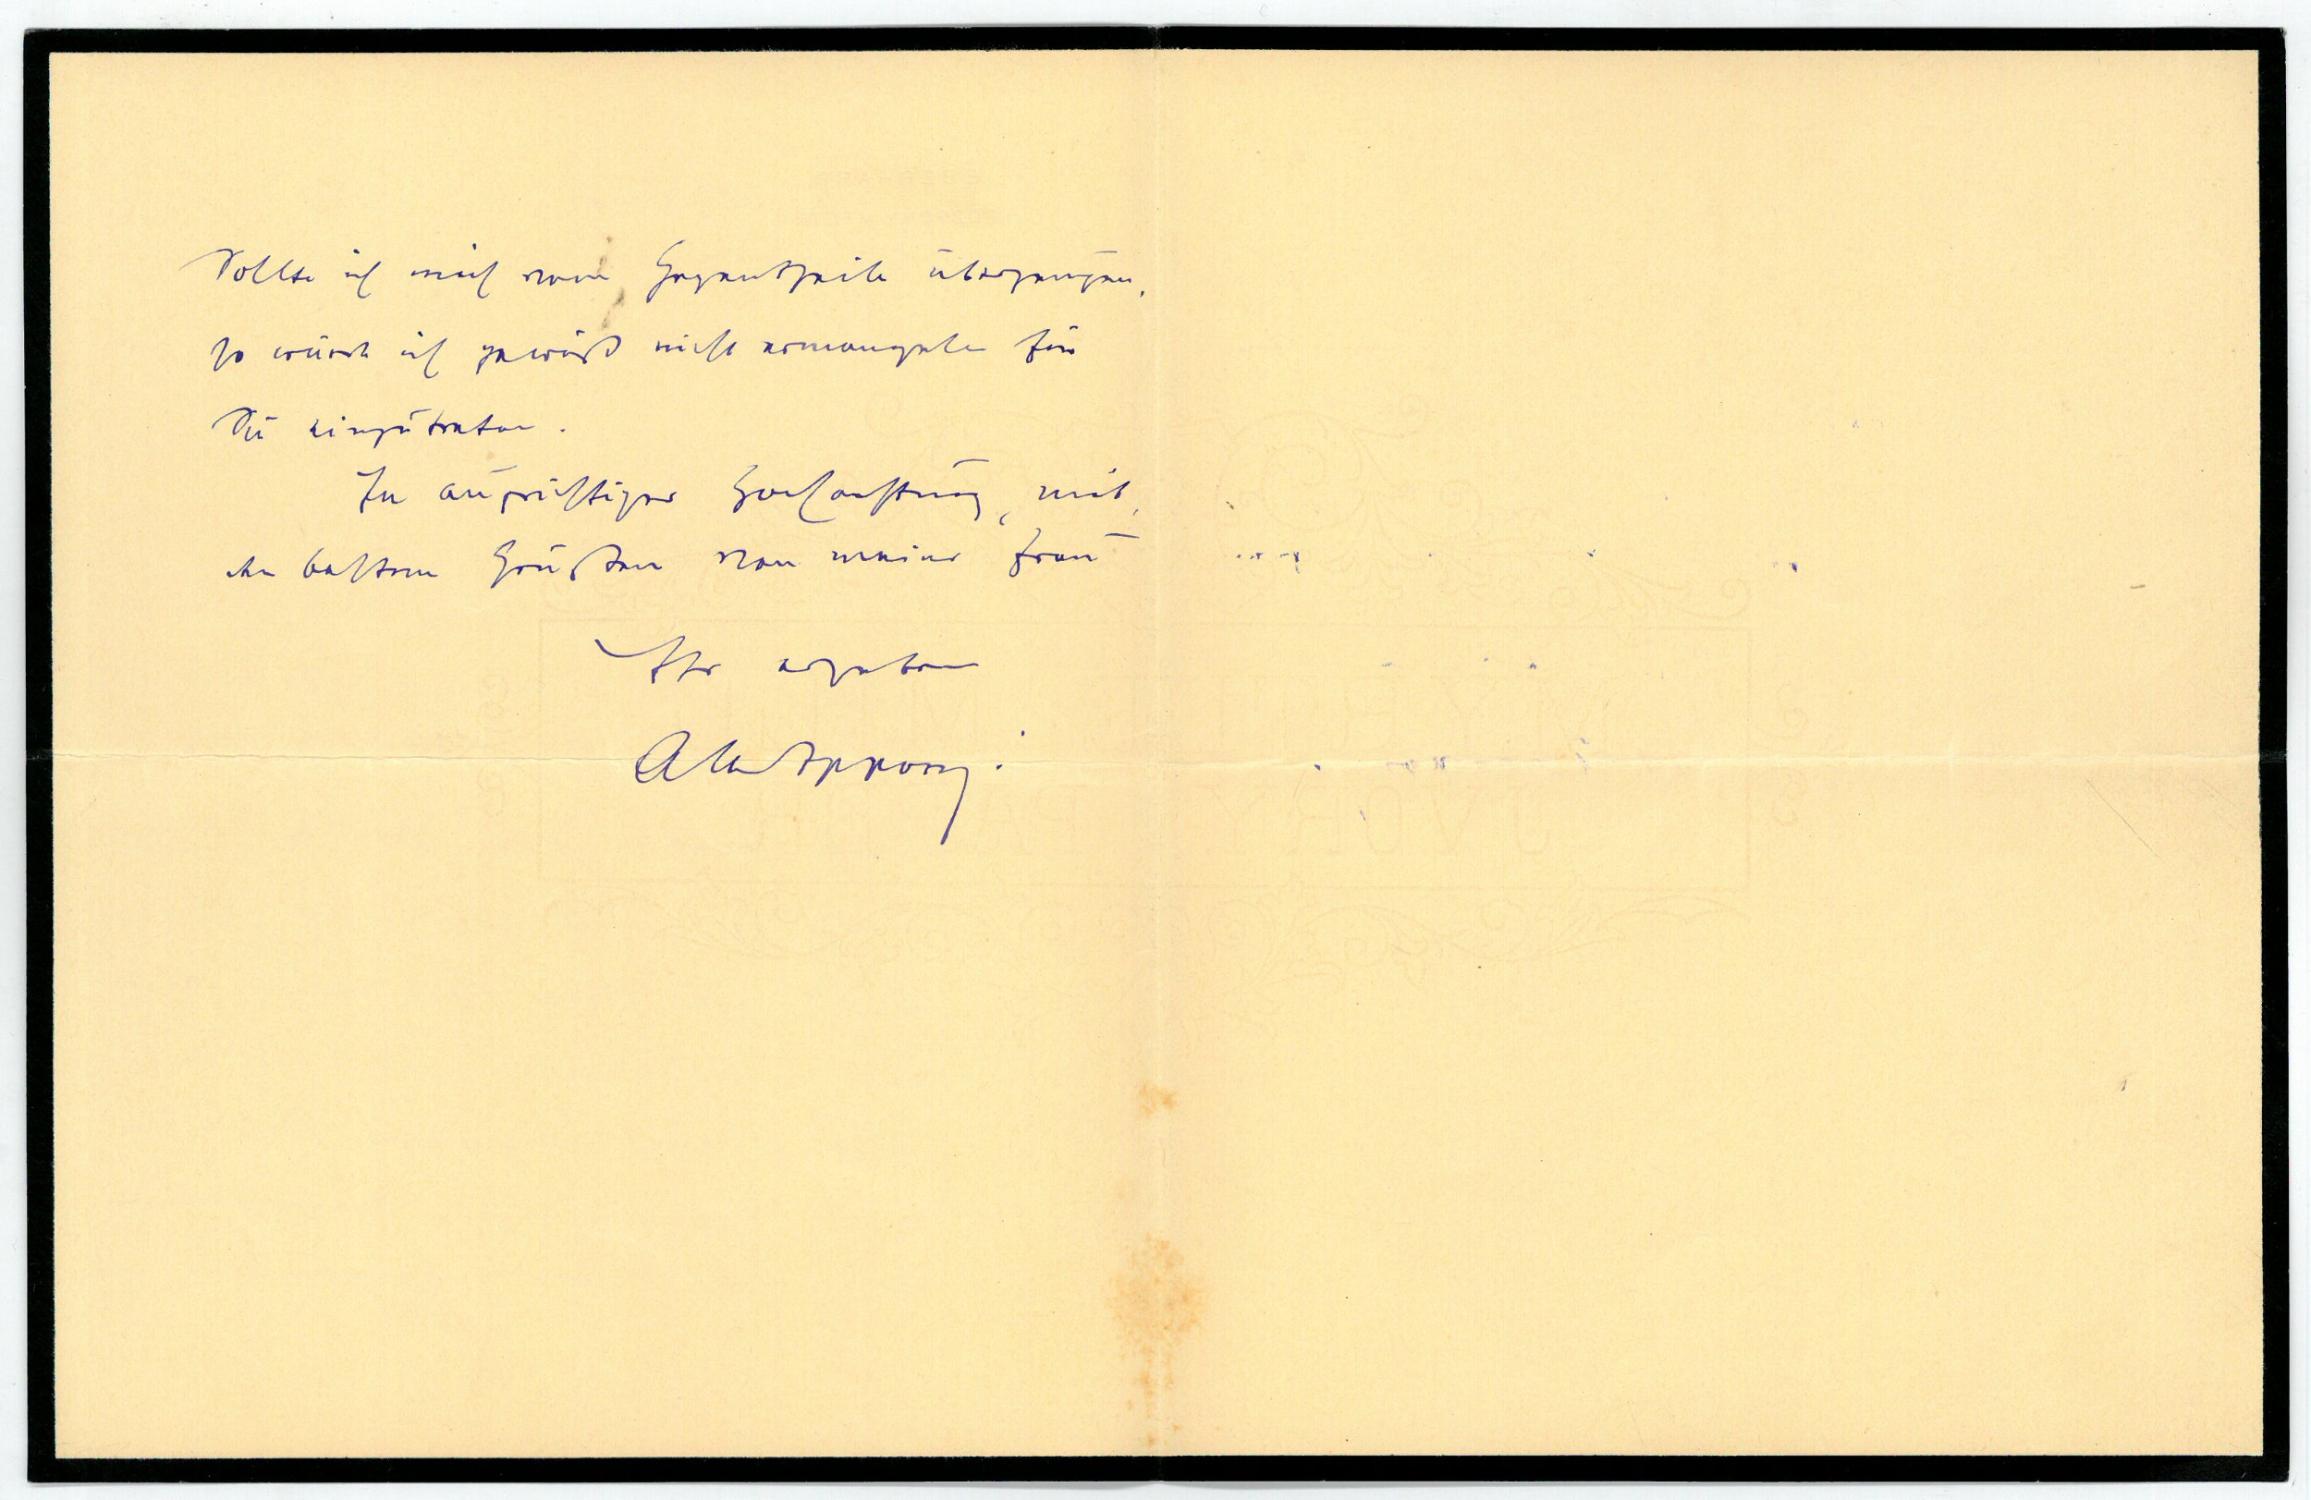 Sollte ich mich vom Gegentheile überzeugen,
so würde ich gewiß nicht ermangeln für
Sie einzutreten.
In aufrichtiger Hochachtung, mit
den besten Grüßen von meiner Frau
Ihr ergebener
Apponyi